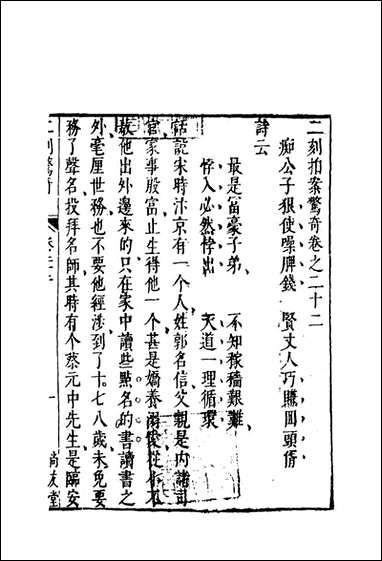 二刻拍案驚奇卷之二十二
痴公子狠使噪脾錢　賢丈人巧賺回頭壻
詩云
最是富豪子弟　不知稼穡艱難
悖入必然悖出　天道一理循環
話說宋時汴京有一个人姓郭名信父親是内諸司
官家事殷富止生得他一个甚是嬌養溺愛從小不
教他出外邊來的只在家中讀些點名的書讀書之
外毫厘世務也不要他經涉到了十七八歲未免要
務了聲名投拜名師其時有个蔡元中先生是臨安
二刻驚奇　卷二十二　一　尚友堂